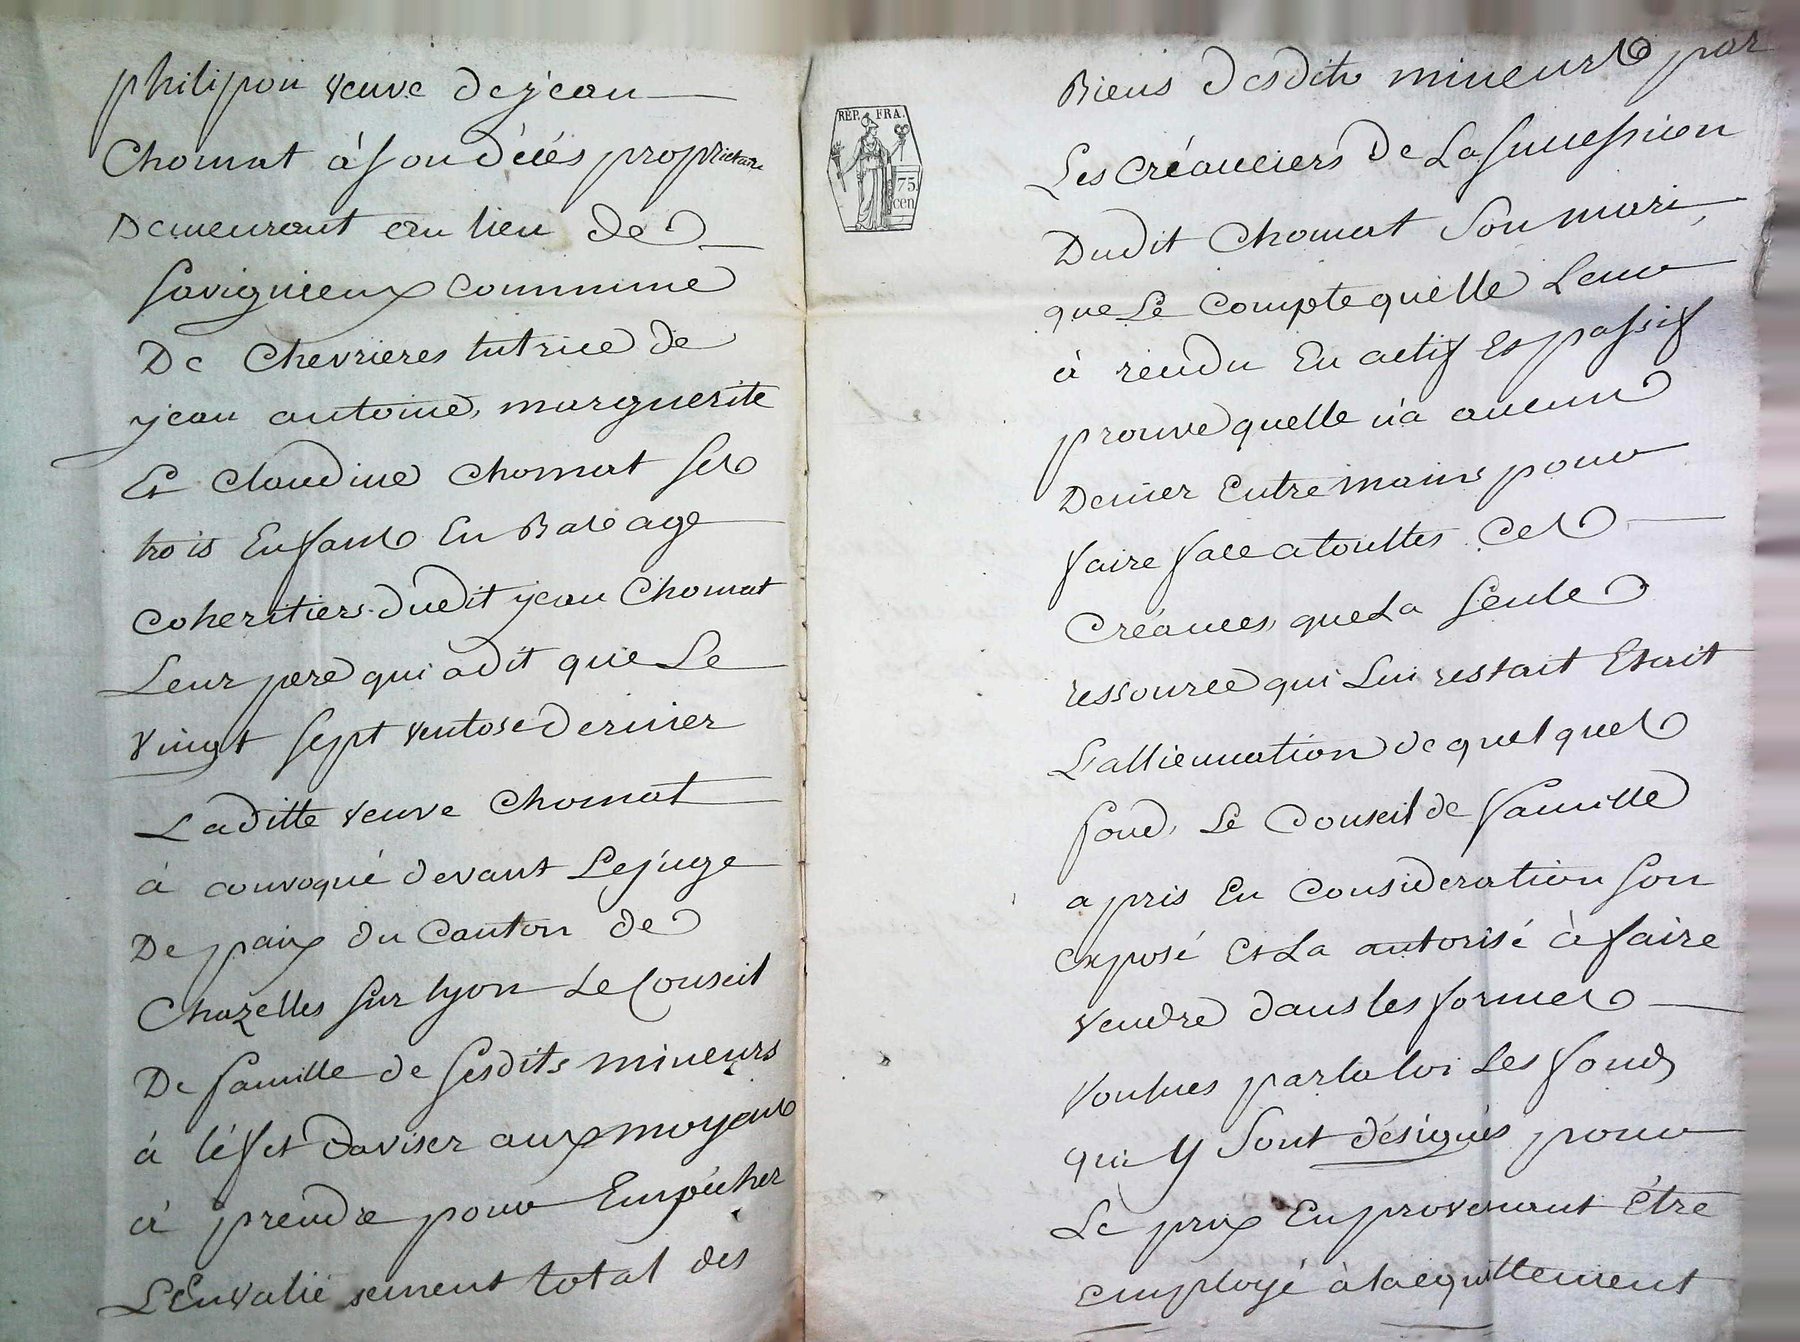 philipon veuve de jean
Chomat à son décés propriétaire
Demeurant au lieu de
Savignieux commune
De Chevrieres tutrice de
jean antoine, marguerite
Et Claudine Chomat ses
trois Enfants En Bas age
Coherritiers dudit jean Chomat
Leur pere qui a dit que Le
vingt sept ventose dernier
Laditte veuve Chomat
à convoqué devant Le juge
De paix du Canton de
Chazelles sur lyon Le Conseil
De famille de sesdits mineurs
à léfet daviser aux moyens
à prendre pour Empécher
L'Envalissement total des
RÉP. FRA.
75
cen
Biens desdits mineurs par
Les Créanciers De La succession
Dudit Chomat son mari,
que Le Compte quelle Leur
à rendu En actif Et passif
prouve quelle n'a aucun
Denier Entre mains pour
faire face a touttes Ces
Créances, que La seule
ressource qui Lui restait Etait
L'alliennation de quelques
fond, Le Conseil de famille
a pris En Consideration son
exposé Et La autorisé à faire
vendre dans les formes
voulues par la loi Les fonds
qui y sont désignés pour
Le prix En provenant être
employé à lacquittement